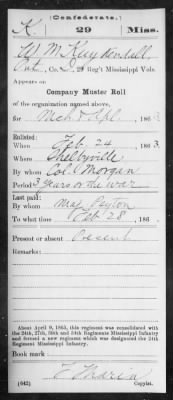 (Confederate.)
K 29 Miss.
W. M. Kuykendall
Pvt, Co. , 29 Reg't Mississippi Vols.
Appears on
Company Muster Roll
of the organization named above,
for Mch & Apl, 186 3.
Enlisted:
When Feb 24, 186 3.
Where Shelbyville
By whom Col. Morgan
Period 3 years or the war
Last paid:
By whom Maj Peyton
To what time Feb 28, 186 .
Present or absent Present
Remarks:
About April 9, 1865, this regiment was consolidated with
the 24th, 27th, 30th and 34th Regiments Mississippi Infantry
and formed a new regiment which was designated the 24th
Regiment Mississippi Infantry.
Book mark:
(642) Copyist.